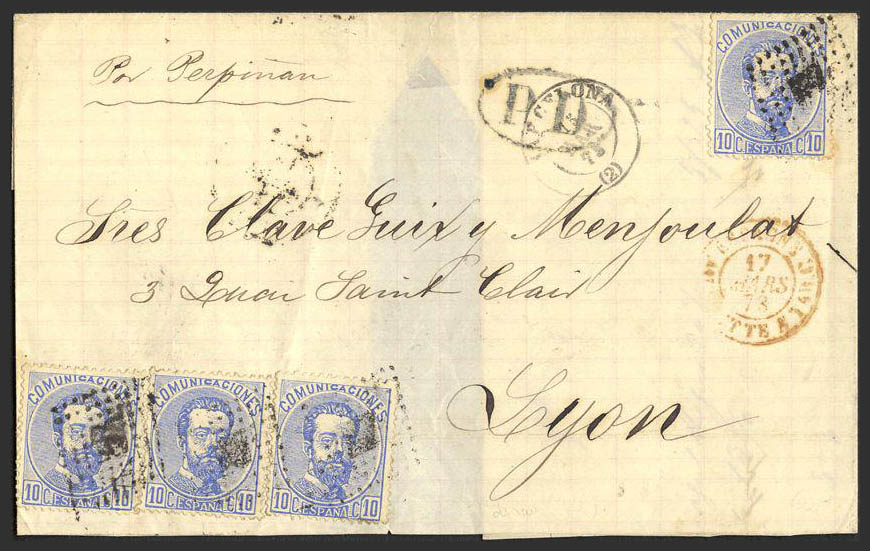 Por Perpiñan
COMUNICACIONES
10 C. ESPAÑA C. 10
P.D.
BARCELONA
73
(2)
Sres Clave Guix y Menjoulat
3 Quai Saint Clair
17
MARS
73
Lyon
COMUNICACIONES
10 C. ESPAÑA C. 10
COMUNICACIONES
10 C. ESPAÑA C. 10
COMUNICACIONES
10 C. ESPAÑA C. 10